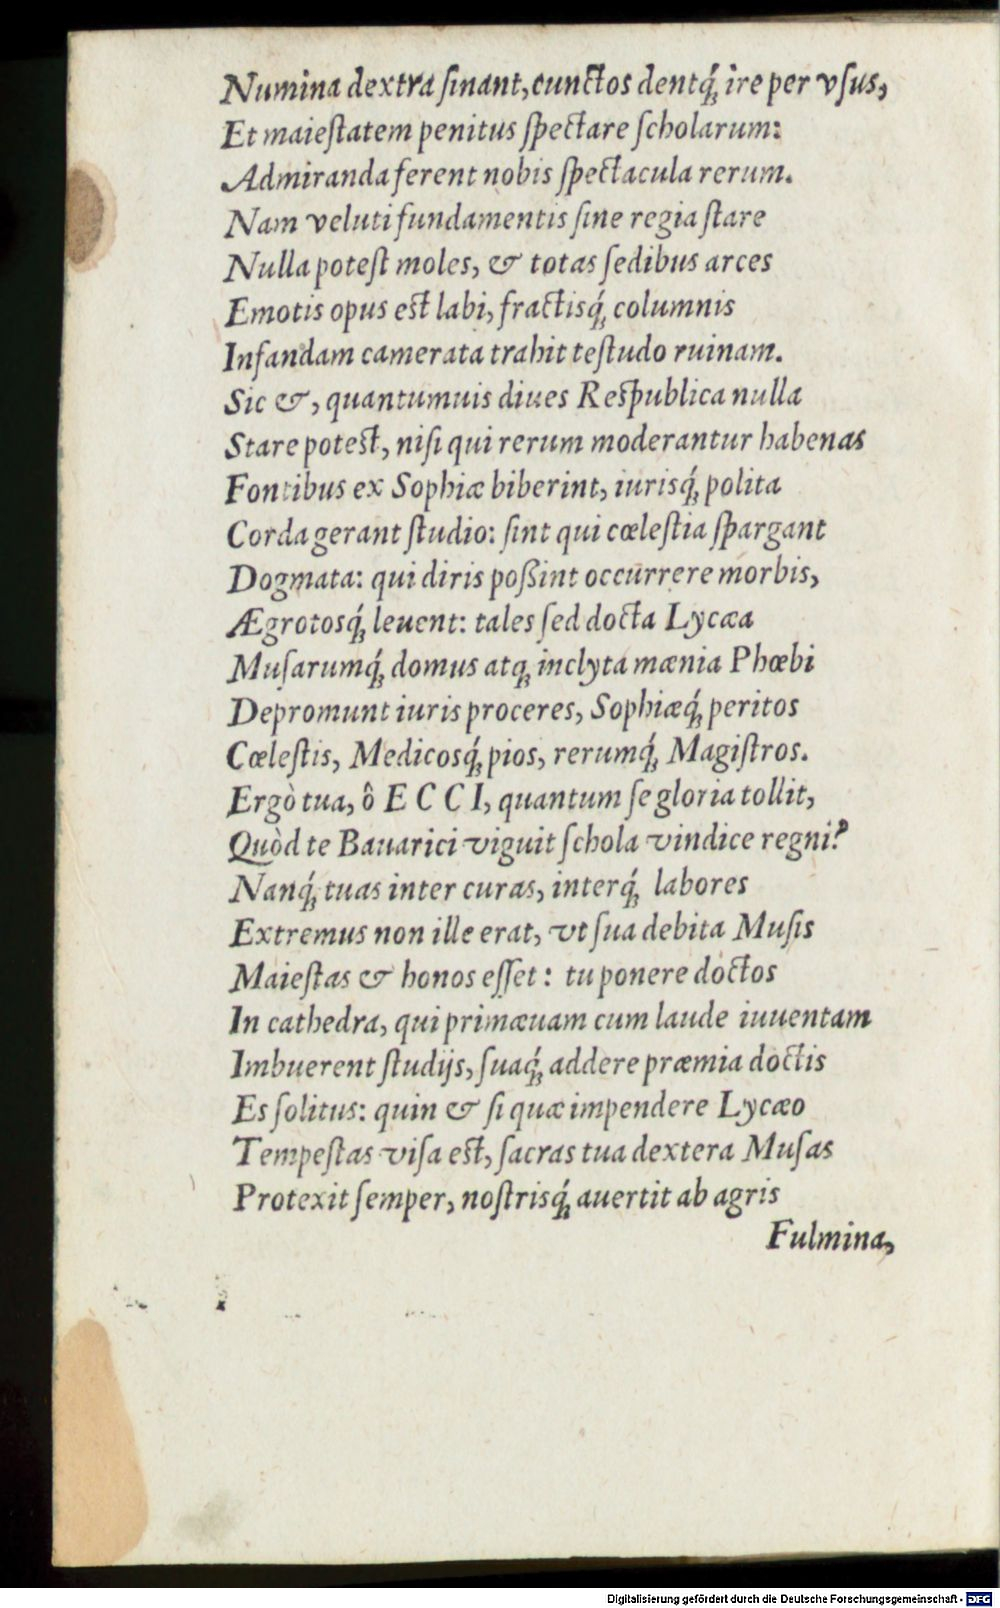 Numina dextra ſinant, cunctos dentq́; ire per vſus,
Et maieſtatem penitus ſpectare ſcholarum:
Admiranda ferent nobis ſpectacula rerum.
Nam veluti fundamentis ſine regia ſtare
Nulla poteſt moles, & totas ſedibus arces
Emotis opus eſt labi, fractisq́; columnis
Infandam camerata trahit teſtudo ruinam.
Sic &, quantumuis diues Reſpublica nulla
Stare poteſt, niſi qui rerum moderantur habenas
Fontibus ex Sophiæ biberint, iurisq́; polita
Corda gerant ſtudio: ſint qui cœleſtia ſpargant
Dogmata: qui diris poßint occurrere morbis,
Ægrotosq́; leuent: tales ſed docta Lycæa
Muſarumq́; domus atq; inclyta mænia Phœbi
Depromunt iuris proceres, Sophiæq́; peritos
Cœleſtis, Medicosq́; pios, rerumq́; Magiſtros.
Ergò tua, ô ECCI, quantum ſe gloria tollit,
Quòd te Bauarici viguit ſchola vindice regni?
Nanq́; tuas inter curas, interq́; labores
Extremus non ille erat, vt ſua debita Muſis
Maieſtas & honos eſſet: tu ponere doctos
In cathedra, qui primæuam cum laude iuuentam
Imbuerent ſtudijs, ſuaq́; addere præmia doctis
Es ſolitus: quin & ſi quæ impendere Lycæo
Tempeſtas viſa eſt, ſacras tua dextera Muſas
Protexit ſemper, noſtrisq́; auertit ab agris
Fulmina,
Digitalisierung gefördert durch die Deutsche Forschungsgemeinschaft - DFG